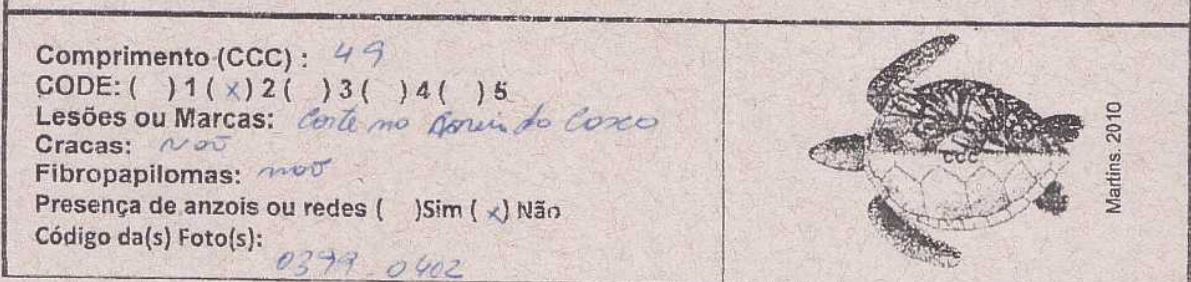 Comprimento (CCC) : 49
CODE: ( ) 1 ( x) 2 ( ) 3 ( ) 4 ( ) 5
Lesões ou Marcas: Corte no do Casco
Cracas: Não
Fibropapilomas: não
Presença de anzois ou redes ( )Sim ( x) Não
Código da(s) Foto(s):
0399 0402
CCC
Martins. 2010